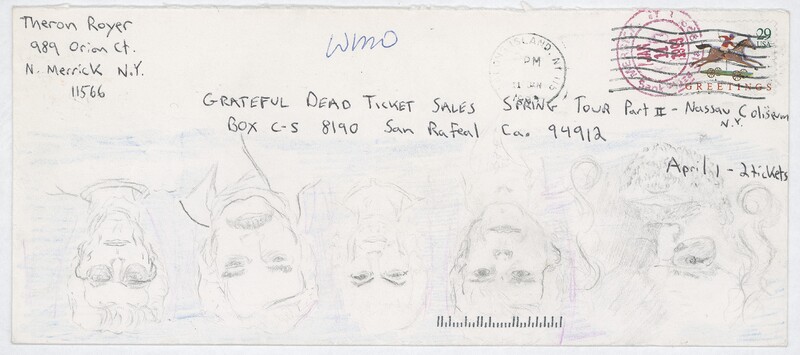 Theron Royer
989 Orion Ct.
N. Merrick N.Y.
11566
WMO
ISLAND, N.Y.
PM
29
USA
GREETINGS
GRATEFUL DEAD TICKET SALES SPRING TOUR Part II - Nassau Coliseum
N.Y.
BOX C-S 8190 San Rafeal Ca. 94912
April 1 - 2 tickets